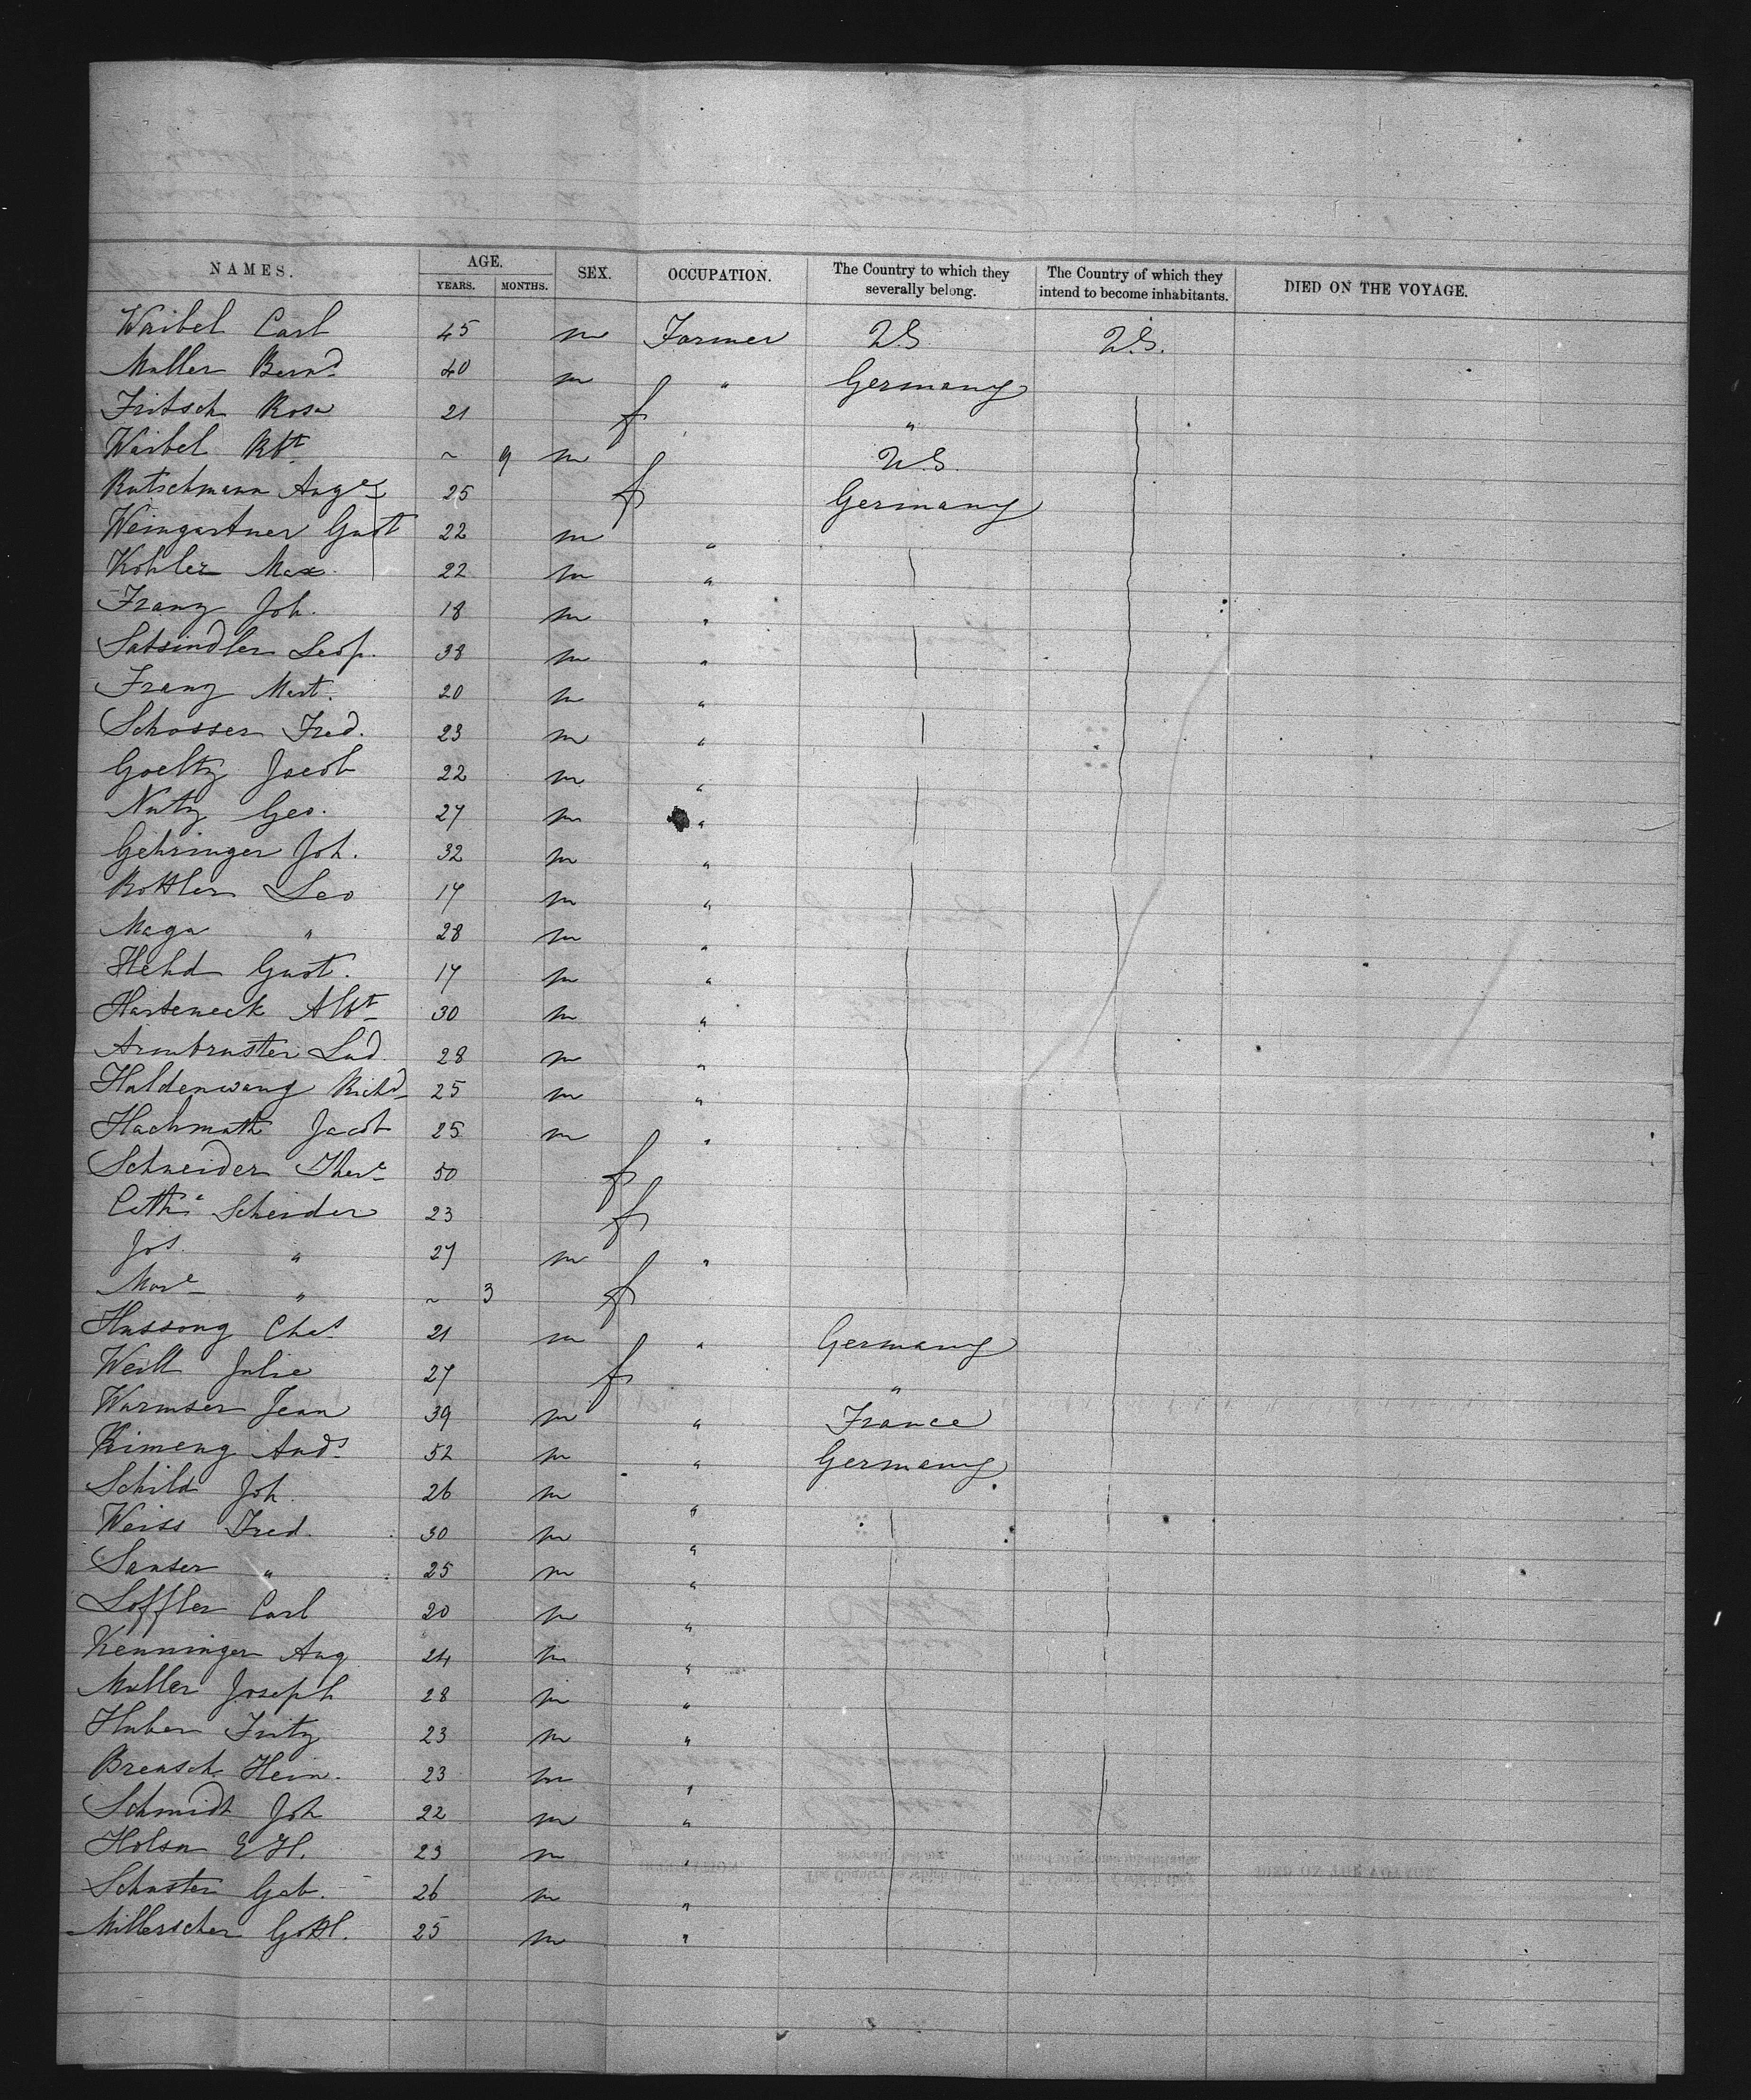 NAMES. AGE. SEX. OCCUPATION. The Country to which they severally belong. The Country of which they intend to become inhabitants. DIED ON THE VOYAGE.
YEARS. MONTHS.
Waibel Carl 45 m Farmer U.S. U.S.
Muller Bernd 40 m " Germany
Fritsch Rosa 21 f "
Waibel Rbt ~ 9 m U.S.
Rutschmann Auge 25 f Germany
Weingartner Gust 22 m "
Kohler Max 22 m "
Franz Joh. 18 m "
Leop. 38 m "
Franz Mart. 20 m "
Schosser Fred. 23 m "
Goeltz Jacob 22 m "
Nutz Geo. 27 m "
Gehringer Joh. 32 m "
Rottler Leo 17 m "
Maga " 28 m "
Hehd Gust. 17 m "
Harteneck Albt 30 m "
Armbruster Lud. 28 m "
Haldenwang Richd 25 m "
Hachmuth Jacob 25 m "
Schneider There 50 f
Cathe Scheider 23 f
Jos. " 27 m "
Mare " ~ 3 f
Hussong Chas 21 m " Germany
Weill Julie 27 f "
Wurmser Jean 39 m " France
Kimeng Ands 52 m " Germany
Schild Joh 26 m "
Weiss Fred. 30 m "
Sanser " 25 m "
Loffler Carl 20 m "
Kenninger Aug 24 m "
Muller Joseph 28 m "
Huber Fritz 23 m "
Breusch Hein. 23 m "
Schmidt Joh 22 m "
Holsn E H. 23 m "
Schuster Gab. 26 m "
Millerscher Gottl. 25 m "